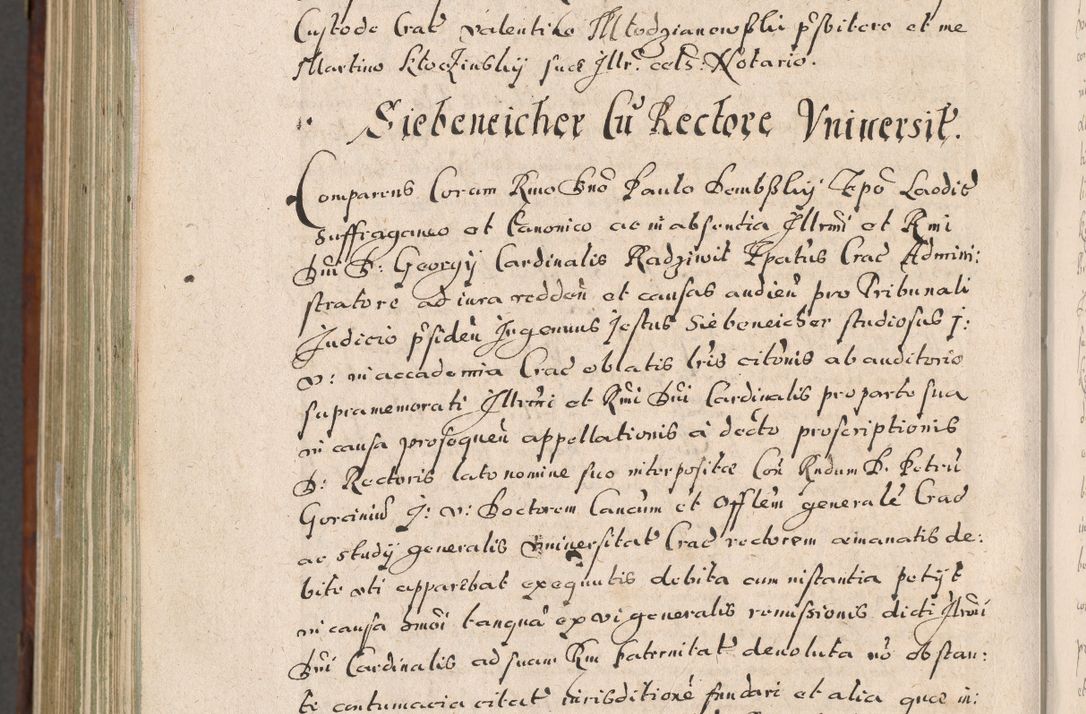 Custode Crac Valentino Młodzianowskii psbitero et me
Martino Kłoczinskij suae Illr: cels: Notario.
Siebeneicher Cu Rectore Vniuersit.
Comparens Coram Rmo Dno Paulo Dembskij Epo Laodic
suffraganeo et Canonico ac in absentia Illrmi et Rmi
Dni D: Georgij Cardinalis Radziwił Epatus Crac Admini:
stratore ad iura redden et causas audien pro Tribunali
Judicio psiden Ingenuus Jestus Siebeneicher studiosus J:
V: in accademia Crac oblatis lris citonis ab auditorio
supramemorati Illrmi et Rmi Dni Cardinalis pro parte sua
in causa prosequen appellationis a decto proscriptionis
D: Rectoris lato nomine suo interpositae Con Rndum D. Petru
Gorciniu J: V: Doctorem Cancum et Offlem generale Crac
ac Studij generalis Vniuersitat Crac rectorem aemanatis de:
bite vti apparebat exequutis debita cum instantia petijt
in causa dmoi tanqua ex vi generalis remissionis dicti Illrmi
Dni Cardinalis ad suam Rm paternitat deuoluta no obstan:
te contumacia citat iurisditione fundari et alia quae in: